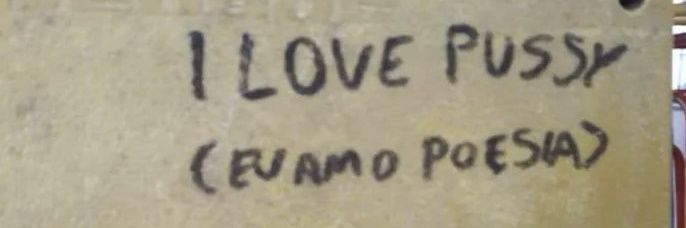 I LOVE PUSSY
(EU AMO POESIA)